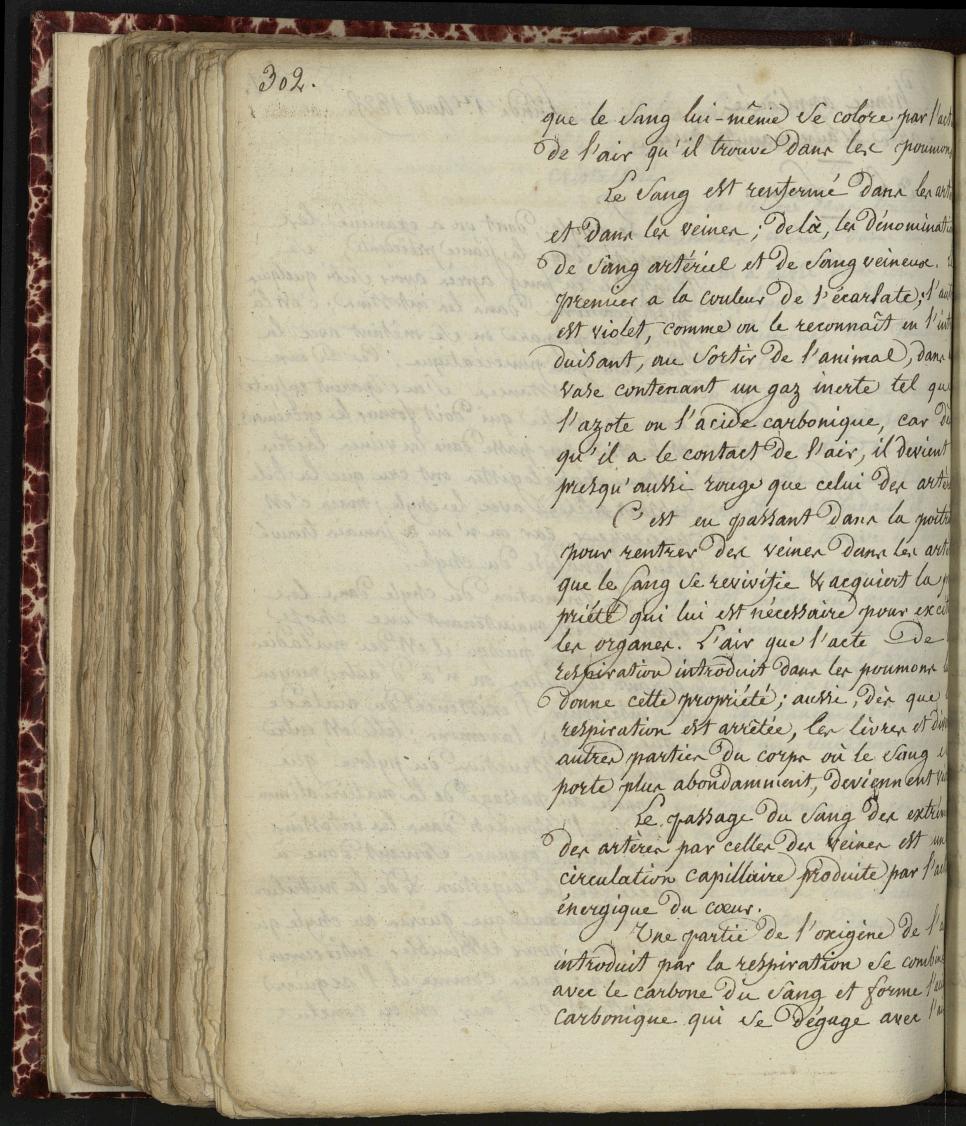 302.
que le Sang lui-même se colore par l'act
de l'air qu'il trouve dans les poumons
Le Sang est renfermé dans les art
et dans les veines ; delà, les dénominati
de Sang artériel et de Sang veineux.
premier a la couleur de l'écarlate ; l'aut
est violet, comme on le reconnaît en l'int
duisant, au sortir de l'animal, dans
vase contenant un gaz inerte tel que
l'azote ou l'acide carbonique, car dè
qu'il a le contact de l'air, il devient
presqu'aussi rouge que celui des artè
C'est en passant dans la poitri
pour rentrer des veines dans les arté
que le Sang se revivifie & acquiert la p
priété qui lui est nécessaire pour exci
les organes. L'air que l'acte de
respiration introduit dans les poumons
donne cette propriété ; aussi, dès que
respiration est arrêtée, les lèvres et div
autres parties du corps où le Sang
porte plus abondamment, deviennent
Le passage du Sang des extrém
des artères par celles des veines est un
circulation capillaire produite par l'ac
énergique du cœur.
Une partie de l'oxigène de l'a
introduit par la respiration se combin
avec le carbone du Sang et forme l'a
carbonique qui se dégage avec l'a